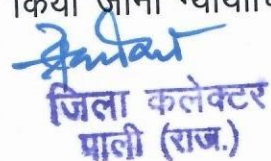 किया जाना न्यायोचि
जिला कलेक्टर
पाली (राज.)